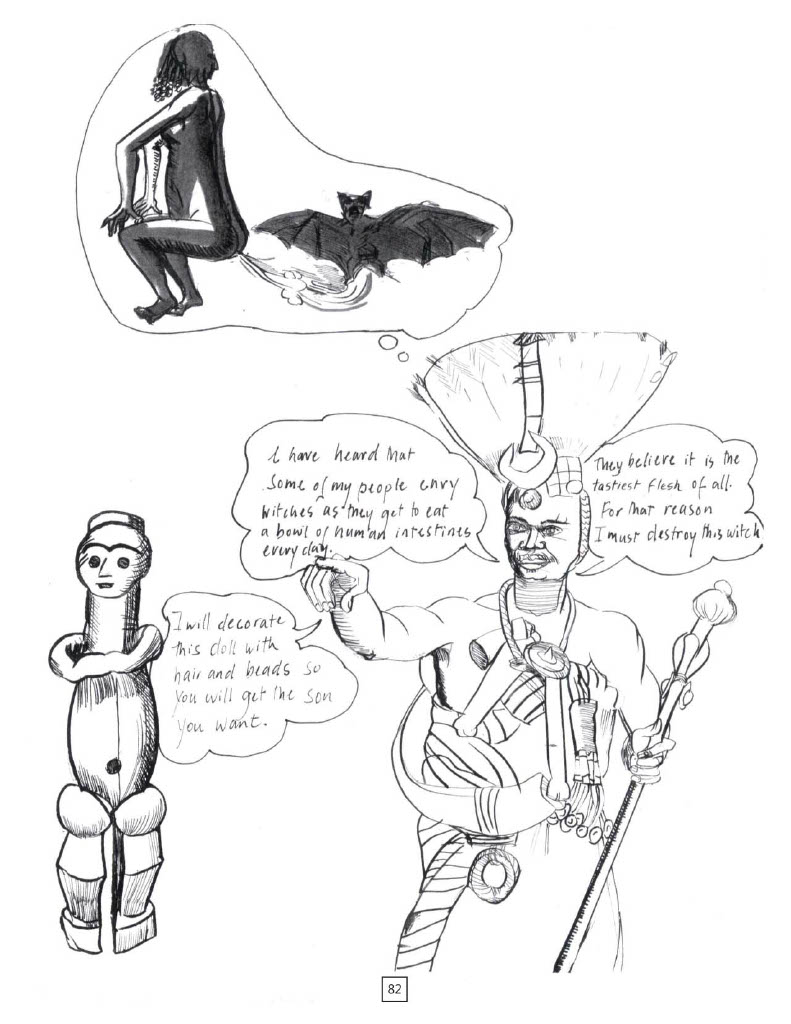 I have heard that
some of my people envy
witches as they get to eat
a bowl of human intestines
every day.
They believe it is the
tastiest flesh of all.
For that reason
I must destroy this witch
I will decorate
this doll with
hair and beads so
you will get the son
you want.
82